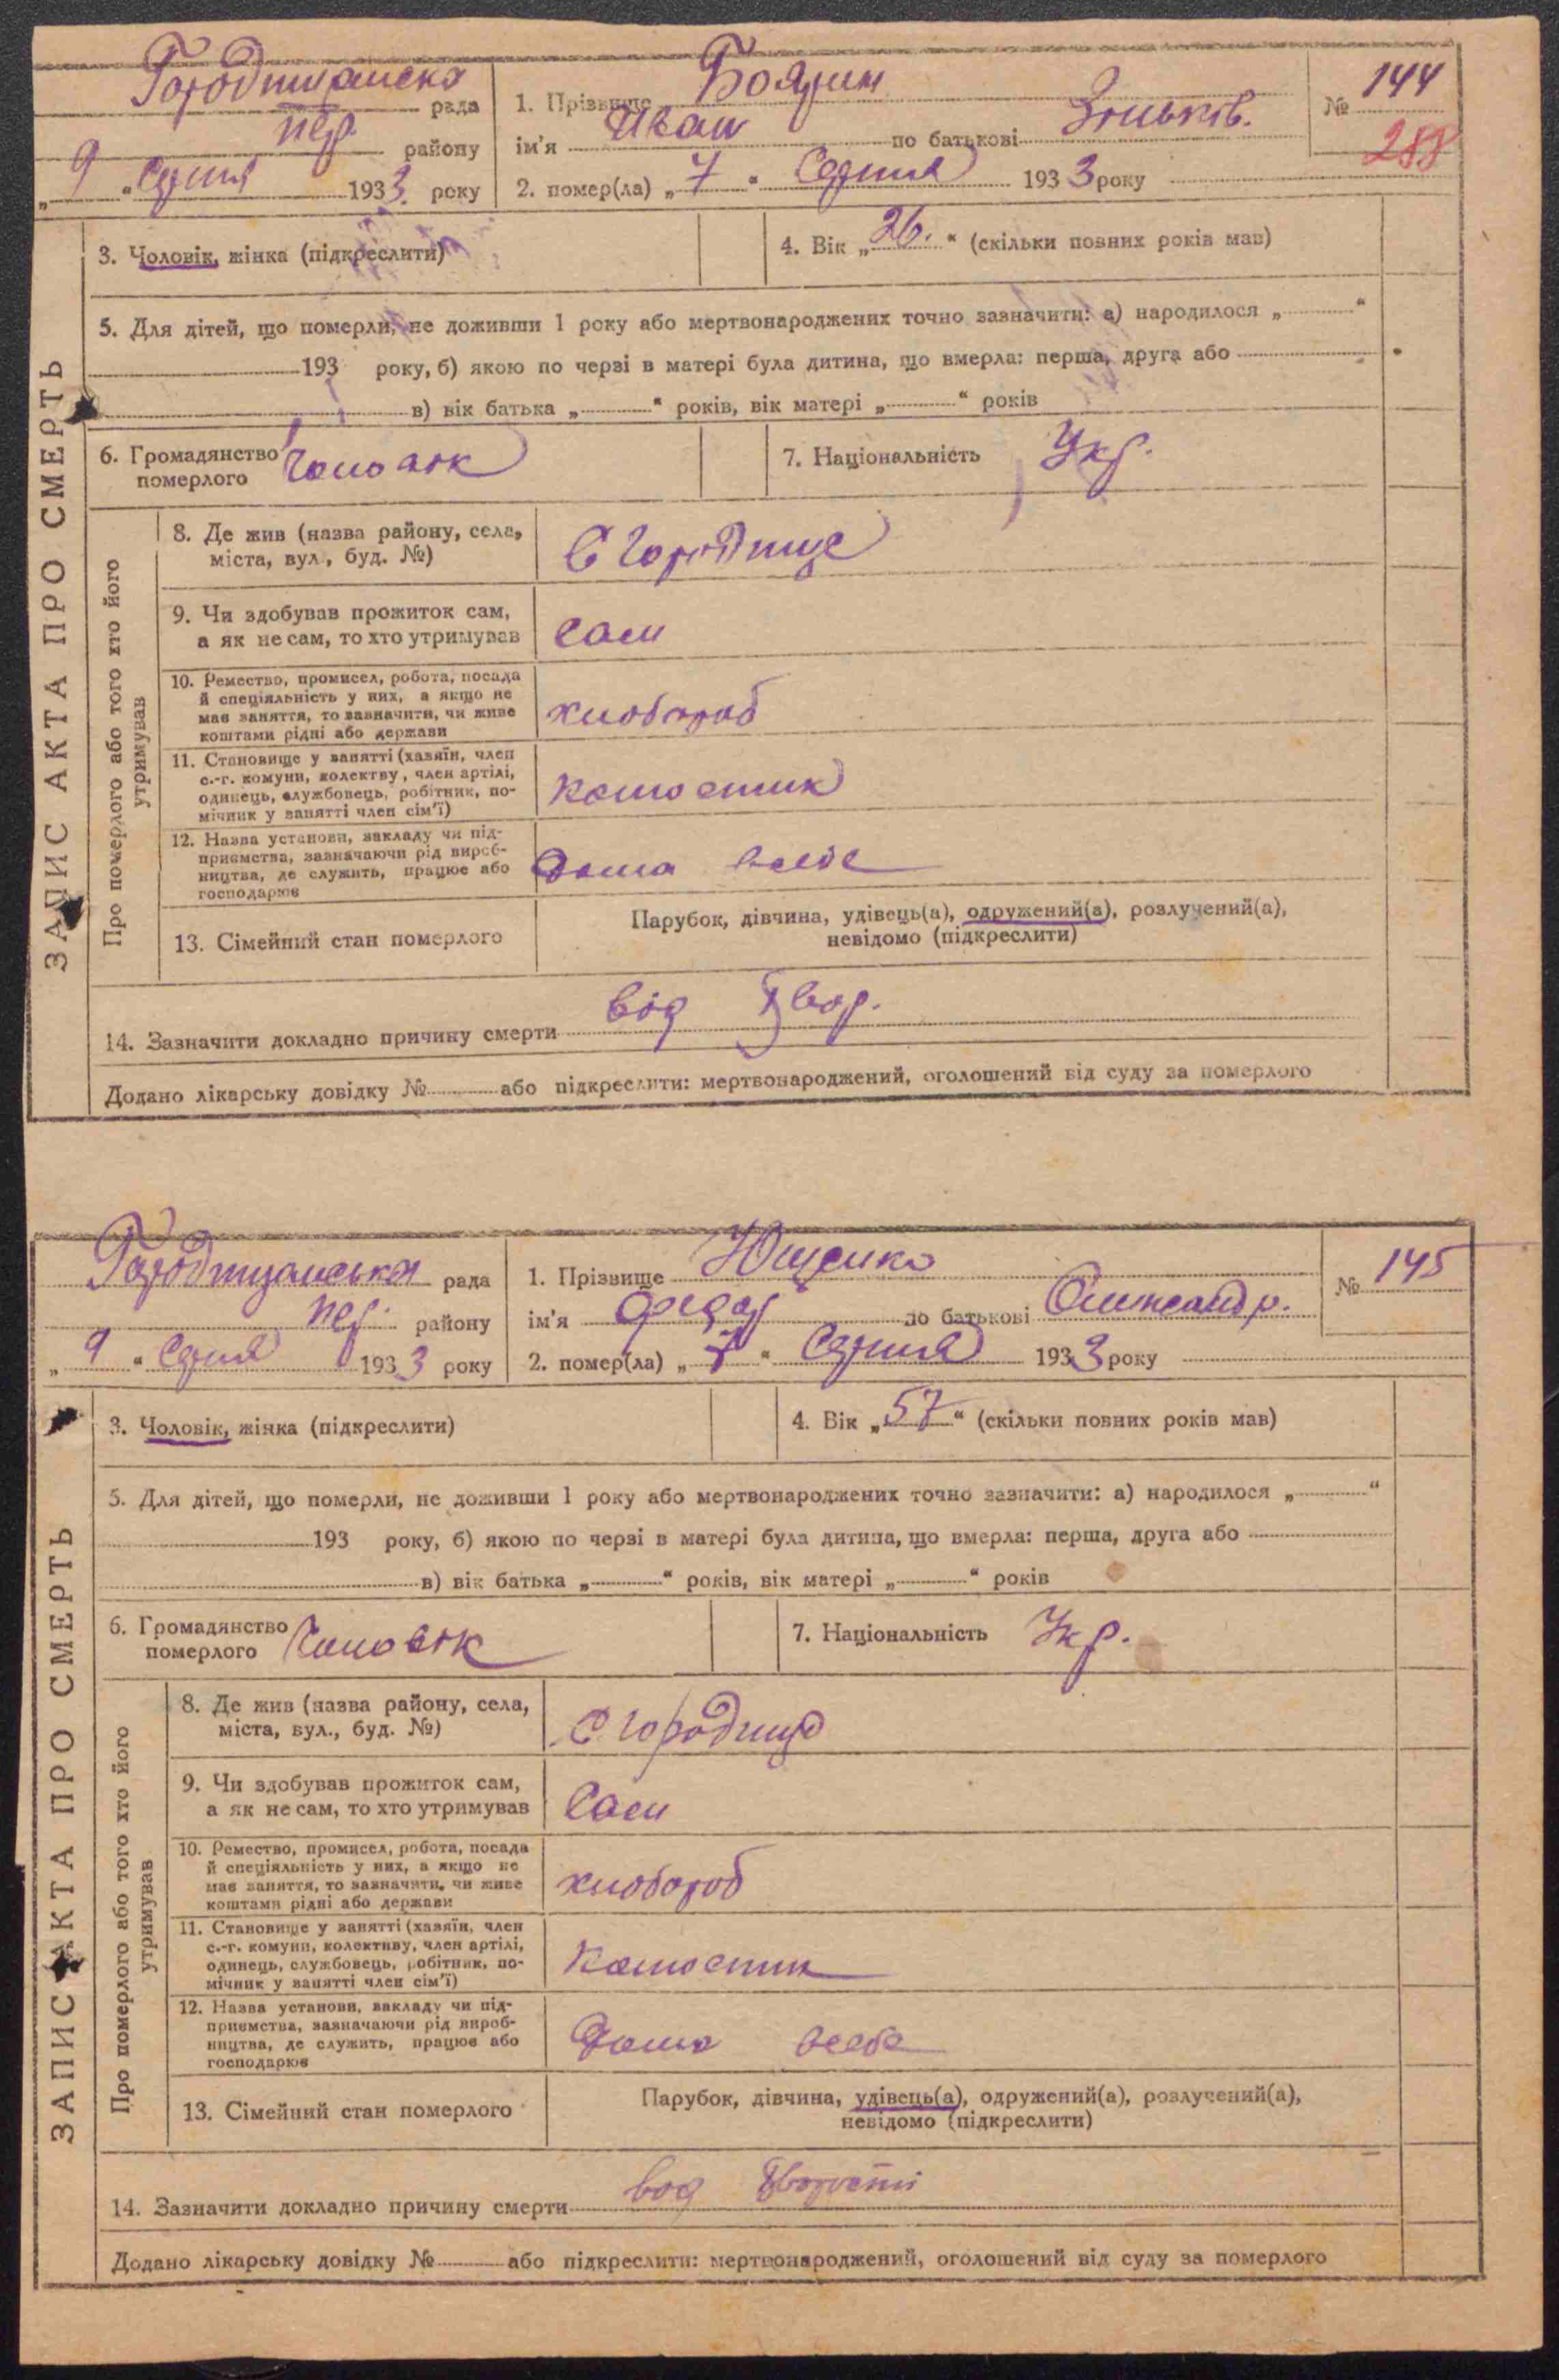 Городищанська рада
пер. району
„9“ Серпня 1933 року
1. Прізвище Боярин
ім'я Иван по батькові Зіньків.
2. помер(ла) „7“ Серпня 1933 року
№ 144
288
ЗАПИС АКТА ПРО СМЕРТЬ
3. Чоловік, жінка (підкреслити)
4. Вік „26.“ (скільки повних років мав)
5. Для дітей, що померли, не доживши 1 року або мертвонароджених точно зазначити: а) народилося „ “
193 року, б) якою по черзі в матері була дитина, що вмерла: перша, друга або
в) вік батька „ “ років, вік матері „ “ років
6. Громадянство
померлого Чоловік
7. Національність Укр.
Про померлого або того хто його
утримував
8. Де жив (назва району, села,
міста, вул., буд. №)
С Городище
9. Чи здобував прожиток сам,
а як не сам, то хто утримував
Сам
10. Ремество, промисел, робота, посада
й спеціяльність у них, а якщо не
має заняття, то зазначити, чи живе
коштами рідні або держави
хлобороб
11. Становище у занятті (хазяїн, член
с.-г. комуни, колективу, член артілі,
одинець, службовець, робітник, по-
мічник у занятті член сім'ї)
Колгоспник
12. Назва установи, закладу чи під-
приємства, зазначаючи рід вироб-
ництва, де служить, працює або
господарює
Дома
13. Сімейний стан померлого
Парубок, дівчина, удівець(а), одружений(а), розлучений(а),
невідомо (підкреслити)
14. Зазначити докладно причину смерти від Хвор.
Додано лікарську довідку № або підкреслити: мертвонароджений, оголошений від суду за померлого
Городищанська рада
пер. району
„9“ Серпня 1933 року
1. Прізвище Ющенко
ім'я Федор по батькові Олександр.
2. помер(ла) „7“ Серпня 1933 року
№ 145
ЗАПИС АКТА ПРО СМЕРТЬ
3. Чоловік, жінка (підкреслити)
4. Вік „57“ (скільки повних років мав)
5. Для дітей, що померли, не доживши 1 року або мертвонароджених точно зазначити: а) народилося „ “
193 року, б) якою по черзі в матері була дитина, що вмерла: перша, друга або
в) вік батька „ “ років, вік матері „ “ років
6. Громадянство
померлого Чоловік
7. Національність Укр.
Про померлого або того хто його
утримував
8. Де жив (назва району, села,
міста, вул., буд. №)
С Городище
9. Чи здобував прожиток сам,
а як не сам, то хто утримував
Сам
10. Ремество, промисел, робота, посада
й спеціяльність у них, а якщо не
має заняття, то зазначити, чи живе
коштами рідні або держави
хлобороб
11. Становище у занятті (хазяїн, член
с.-г. комуни, колективу, член артілі,
одинець, службовець, робітник, по-
мічник у занятті член сім'ї)
Колгоспник
12. Назва установи, закладу чи під-
приємства, зазначаючи рід вироб-
ництва, де служить, працює або
господарює
Дома
13. Сімейний стан померлого
Парубок, дівчина, удівець(а), одружений(а), розлучений(а),
невідомо (підкреслити)
14. Зазначити докладно причину смерти вод Хворости
Додано лікарську довідку № або підкреслити: мертвонароджений, оголошений від суду за померлого